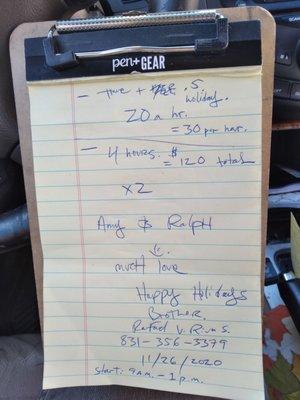 pen+GEAR
- time + .5
holiday.
20 a hr.
= 30 per hour.
- 4 hours. $
= 120 total
x2
Amy & Ralph
much love
Happy Holidays
Brother,
Rafael V. Rivas.
831-356-3379
11/26/2020
Start: 9 A.M. - 1 p.m.